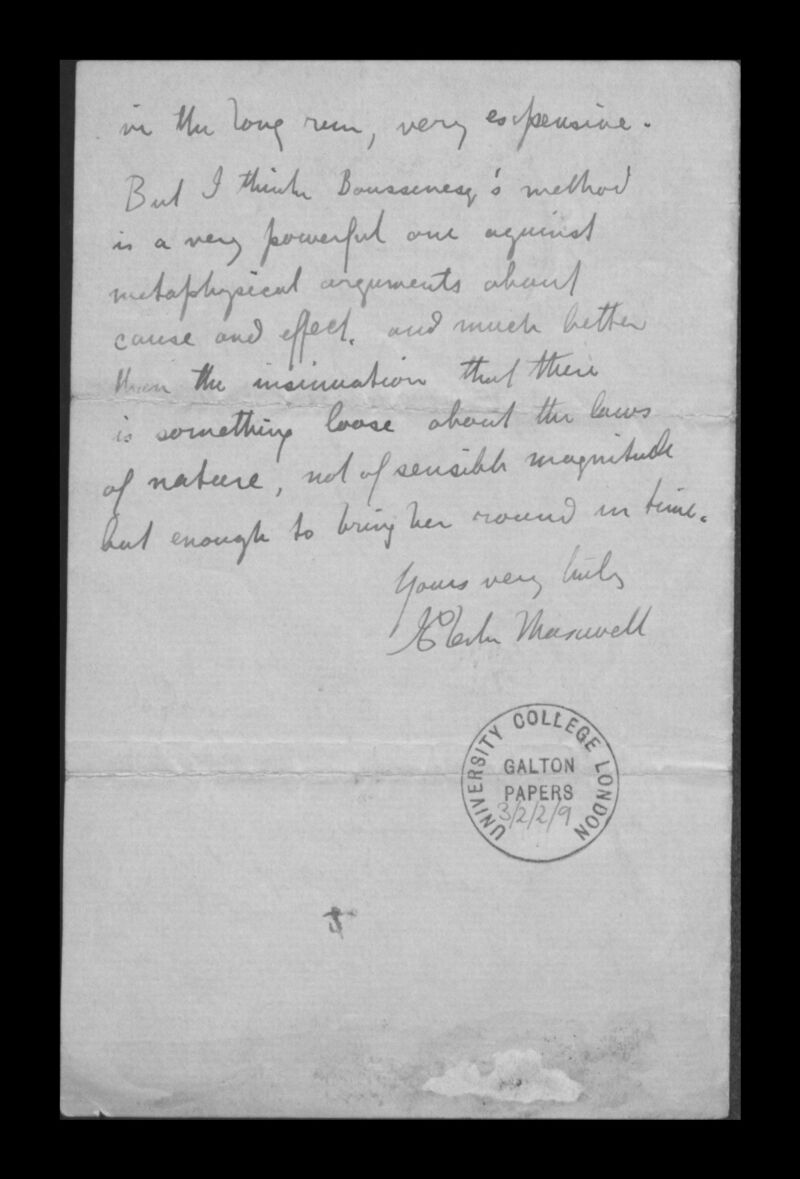 in the long run, very expensive.
But I think Boussinesq's method
is a very powerful one against
metaphysical arguments about
cause and effect. and much better
than the insinuation that there
is something loose about the laws
of nature, not of sensible magnitude
but enough to bring her round in time.
Yours very truly
J Clerk Maxwell
UNIVERSITY COLLEGE LONDON
GALTON
PAPERS
3/2/2/9